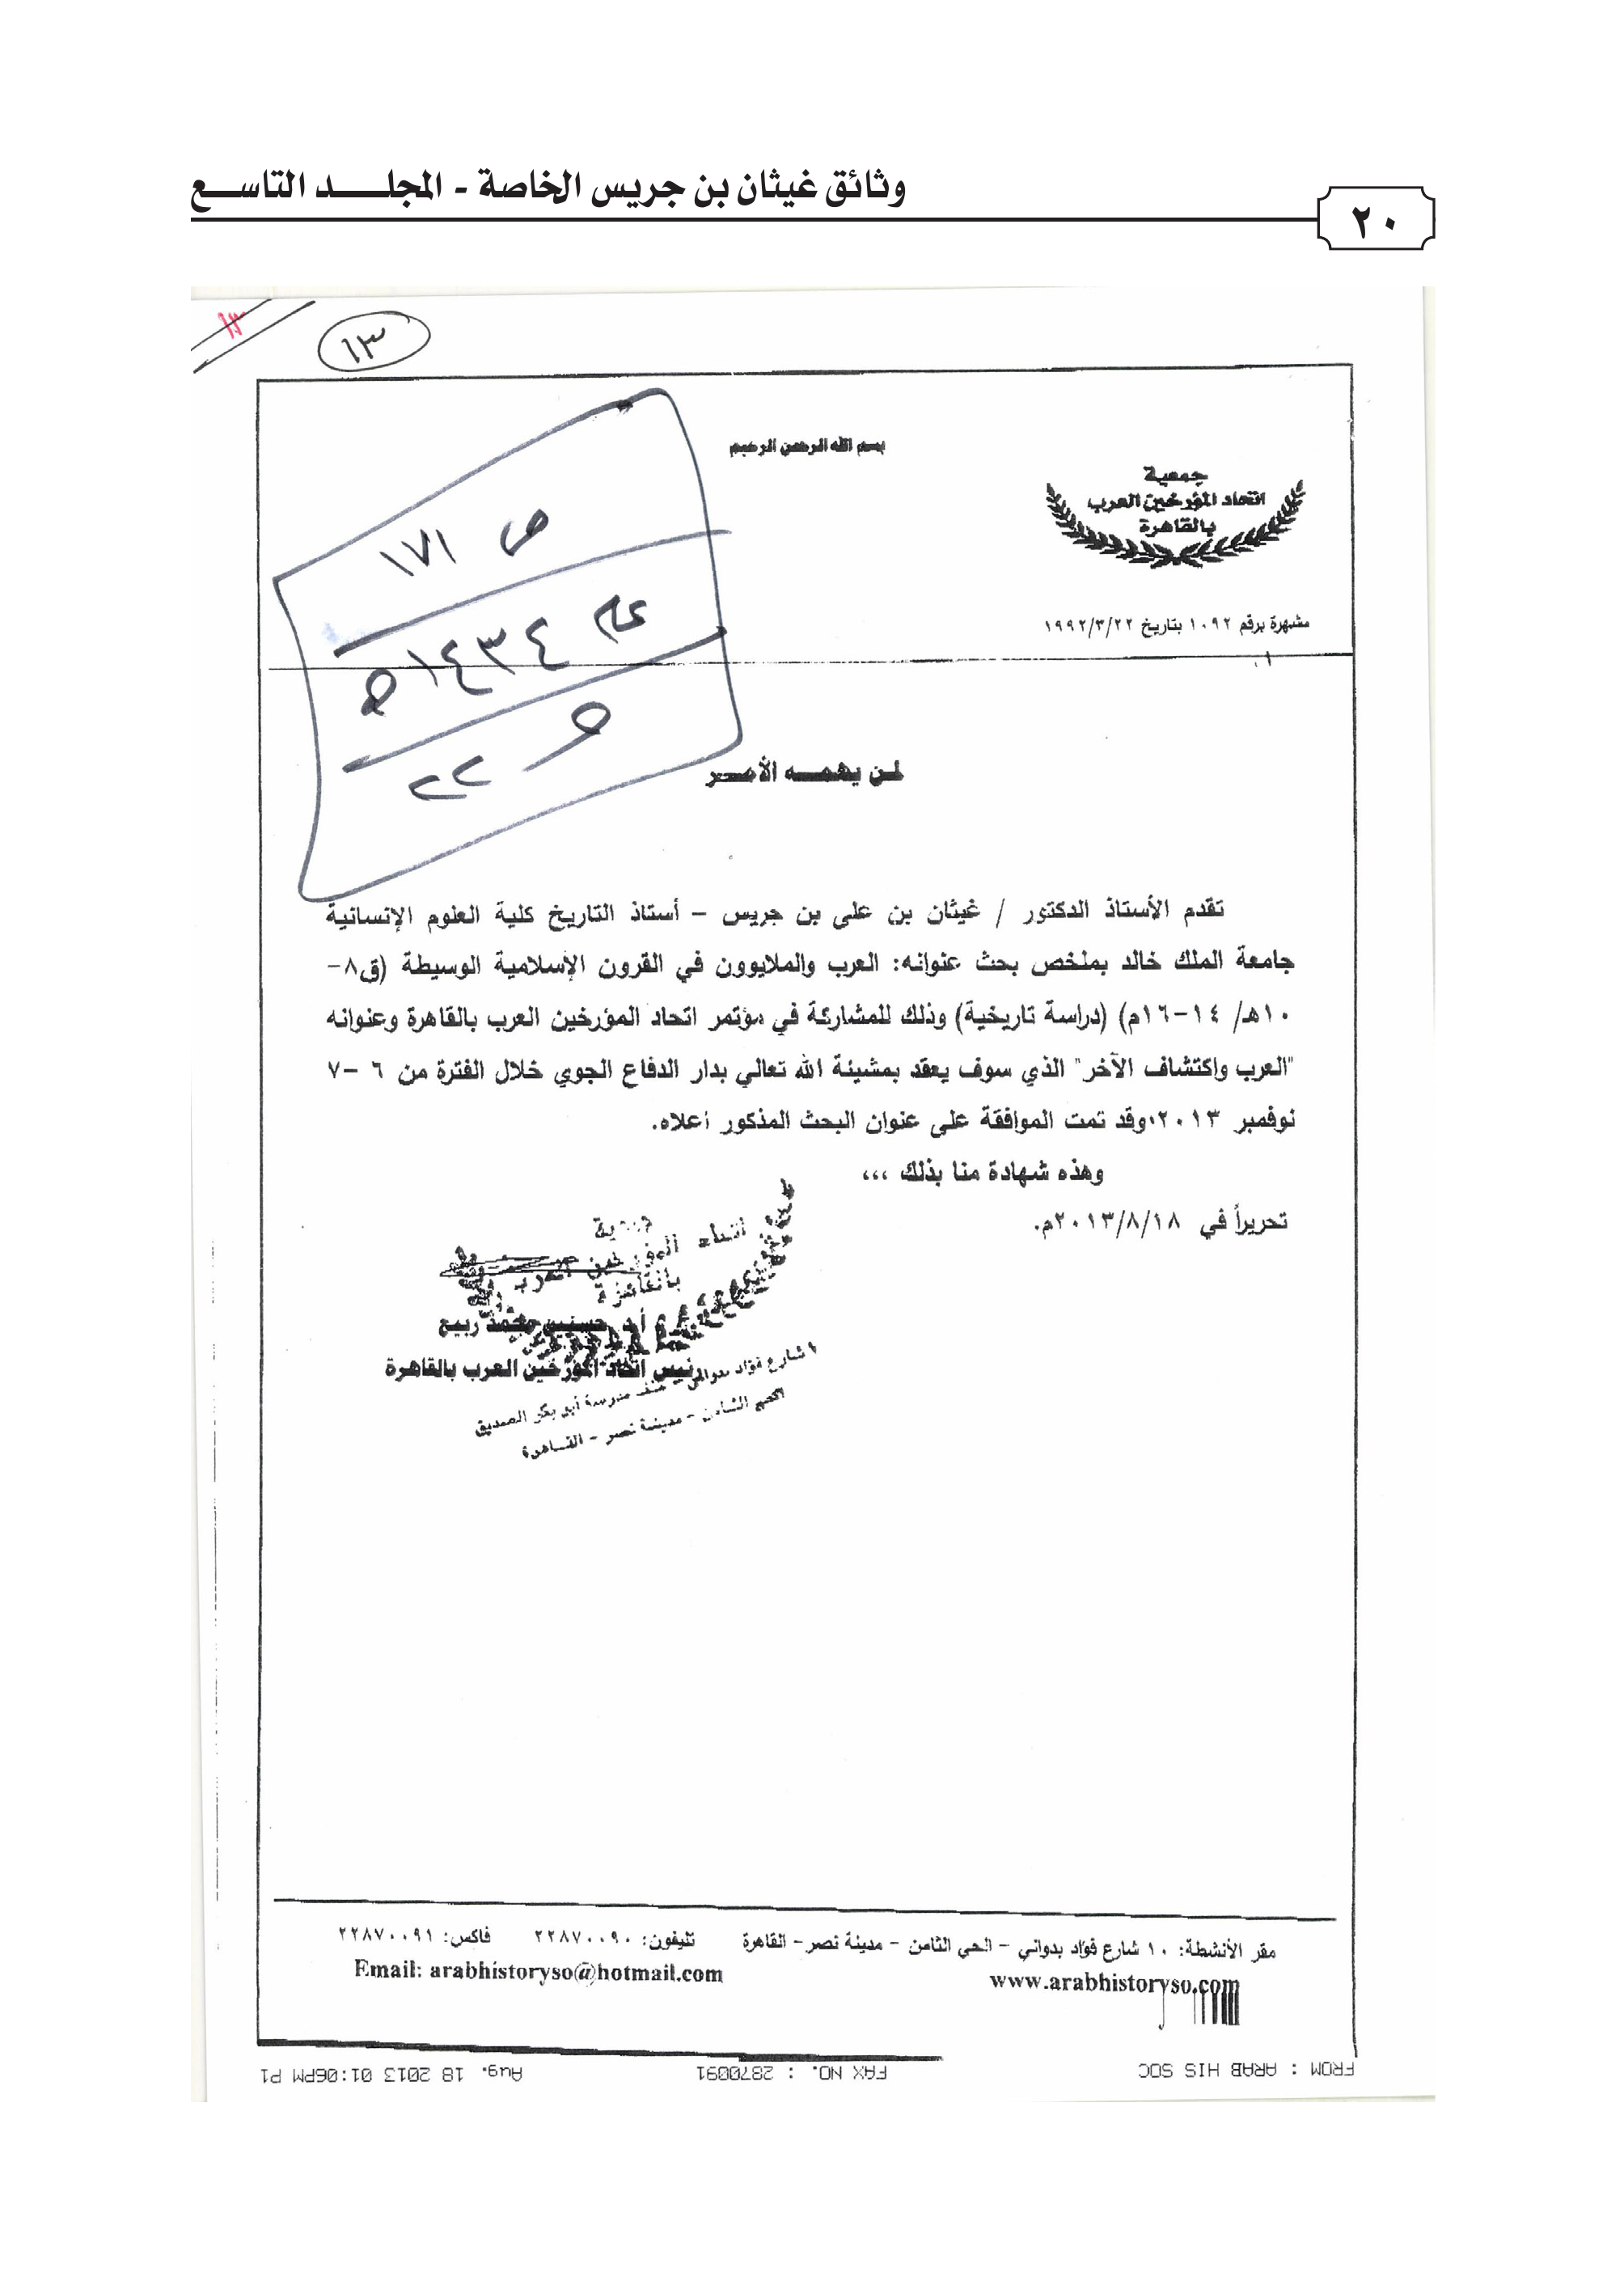 وثائق غيثان بن جريس الخاصة - المجلــــد التاســـع
٢٠
١٣
١٣
بسم الله الرحمن الرحيم
جمعية
اتحاد المؤرخين العرب
بالقاهرة
مشهرة برقم ١٠٩٢ بتاريخ ١٩٩٢/٣/٢٢
ص ١٧١
عام ١٤٣٤هـ
٢٢
لمن يهمــه الأمــر
تقدم الأستاذ الدكتور / غيثان بن على بن جريس – أستاذ التاريخ كلية العلوم الإنسانية
جامعة الملك خالد بملخص بحث عنوانه: العرب والملايوون في القرون الإسلامية الوسيطة (ق٨-
١٠هـ/ ١٤-١٦م) (دراسة تاريخية) وذلك للمشاركة في مؤتمر اتحاد المؤرخين العرب بالقاهرة وعنوانه
"العرب واكتشاف الآخر" الذي سوف يعقد بمشيئة الله تعالي بدار الدفاع الجوي خلال الفترة من ٦ -٧
نوفمبر ٢٠١٣،وقد تمت الموافقة على عنوان البحث المذكور أعلاه.
وهذه شهادة منا بذلك ،،،
تحريراً في ٢٠١٣/٨/١٨م.
جمعية
اتحاد المؤرخين العرب
بالقاهرة
أ.د. حسنين محمد ربيع
رئيس اتحاد المؤرخين العرب بالقاهرة
شارع فؤاد بدوانى - خلف مدرسة أبو بكر الصديق
الحى الثامن - مدينة نصر - القاهرة
مقر الأنشطة: ١٠ شارع فؤاد بدواني – الحي الثامن – مدينة نصر– القاهرة تليفون: ٢٢٨٧٠٠٩٠ فاكس: ٢٢٨٧٠٠٩١
www.arabhistoryso.com Email: arabhistoryso@hotmail.com
FROM : ARAB HIS SOC FAX NO. : 2870091 Aug. 18 2013 01:06PM P1